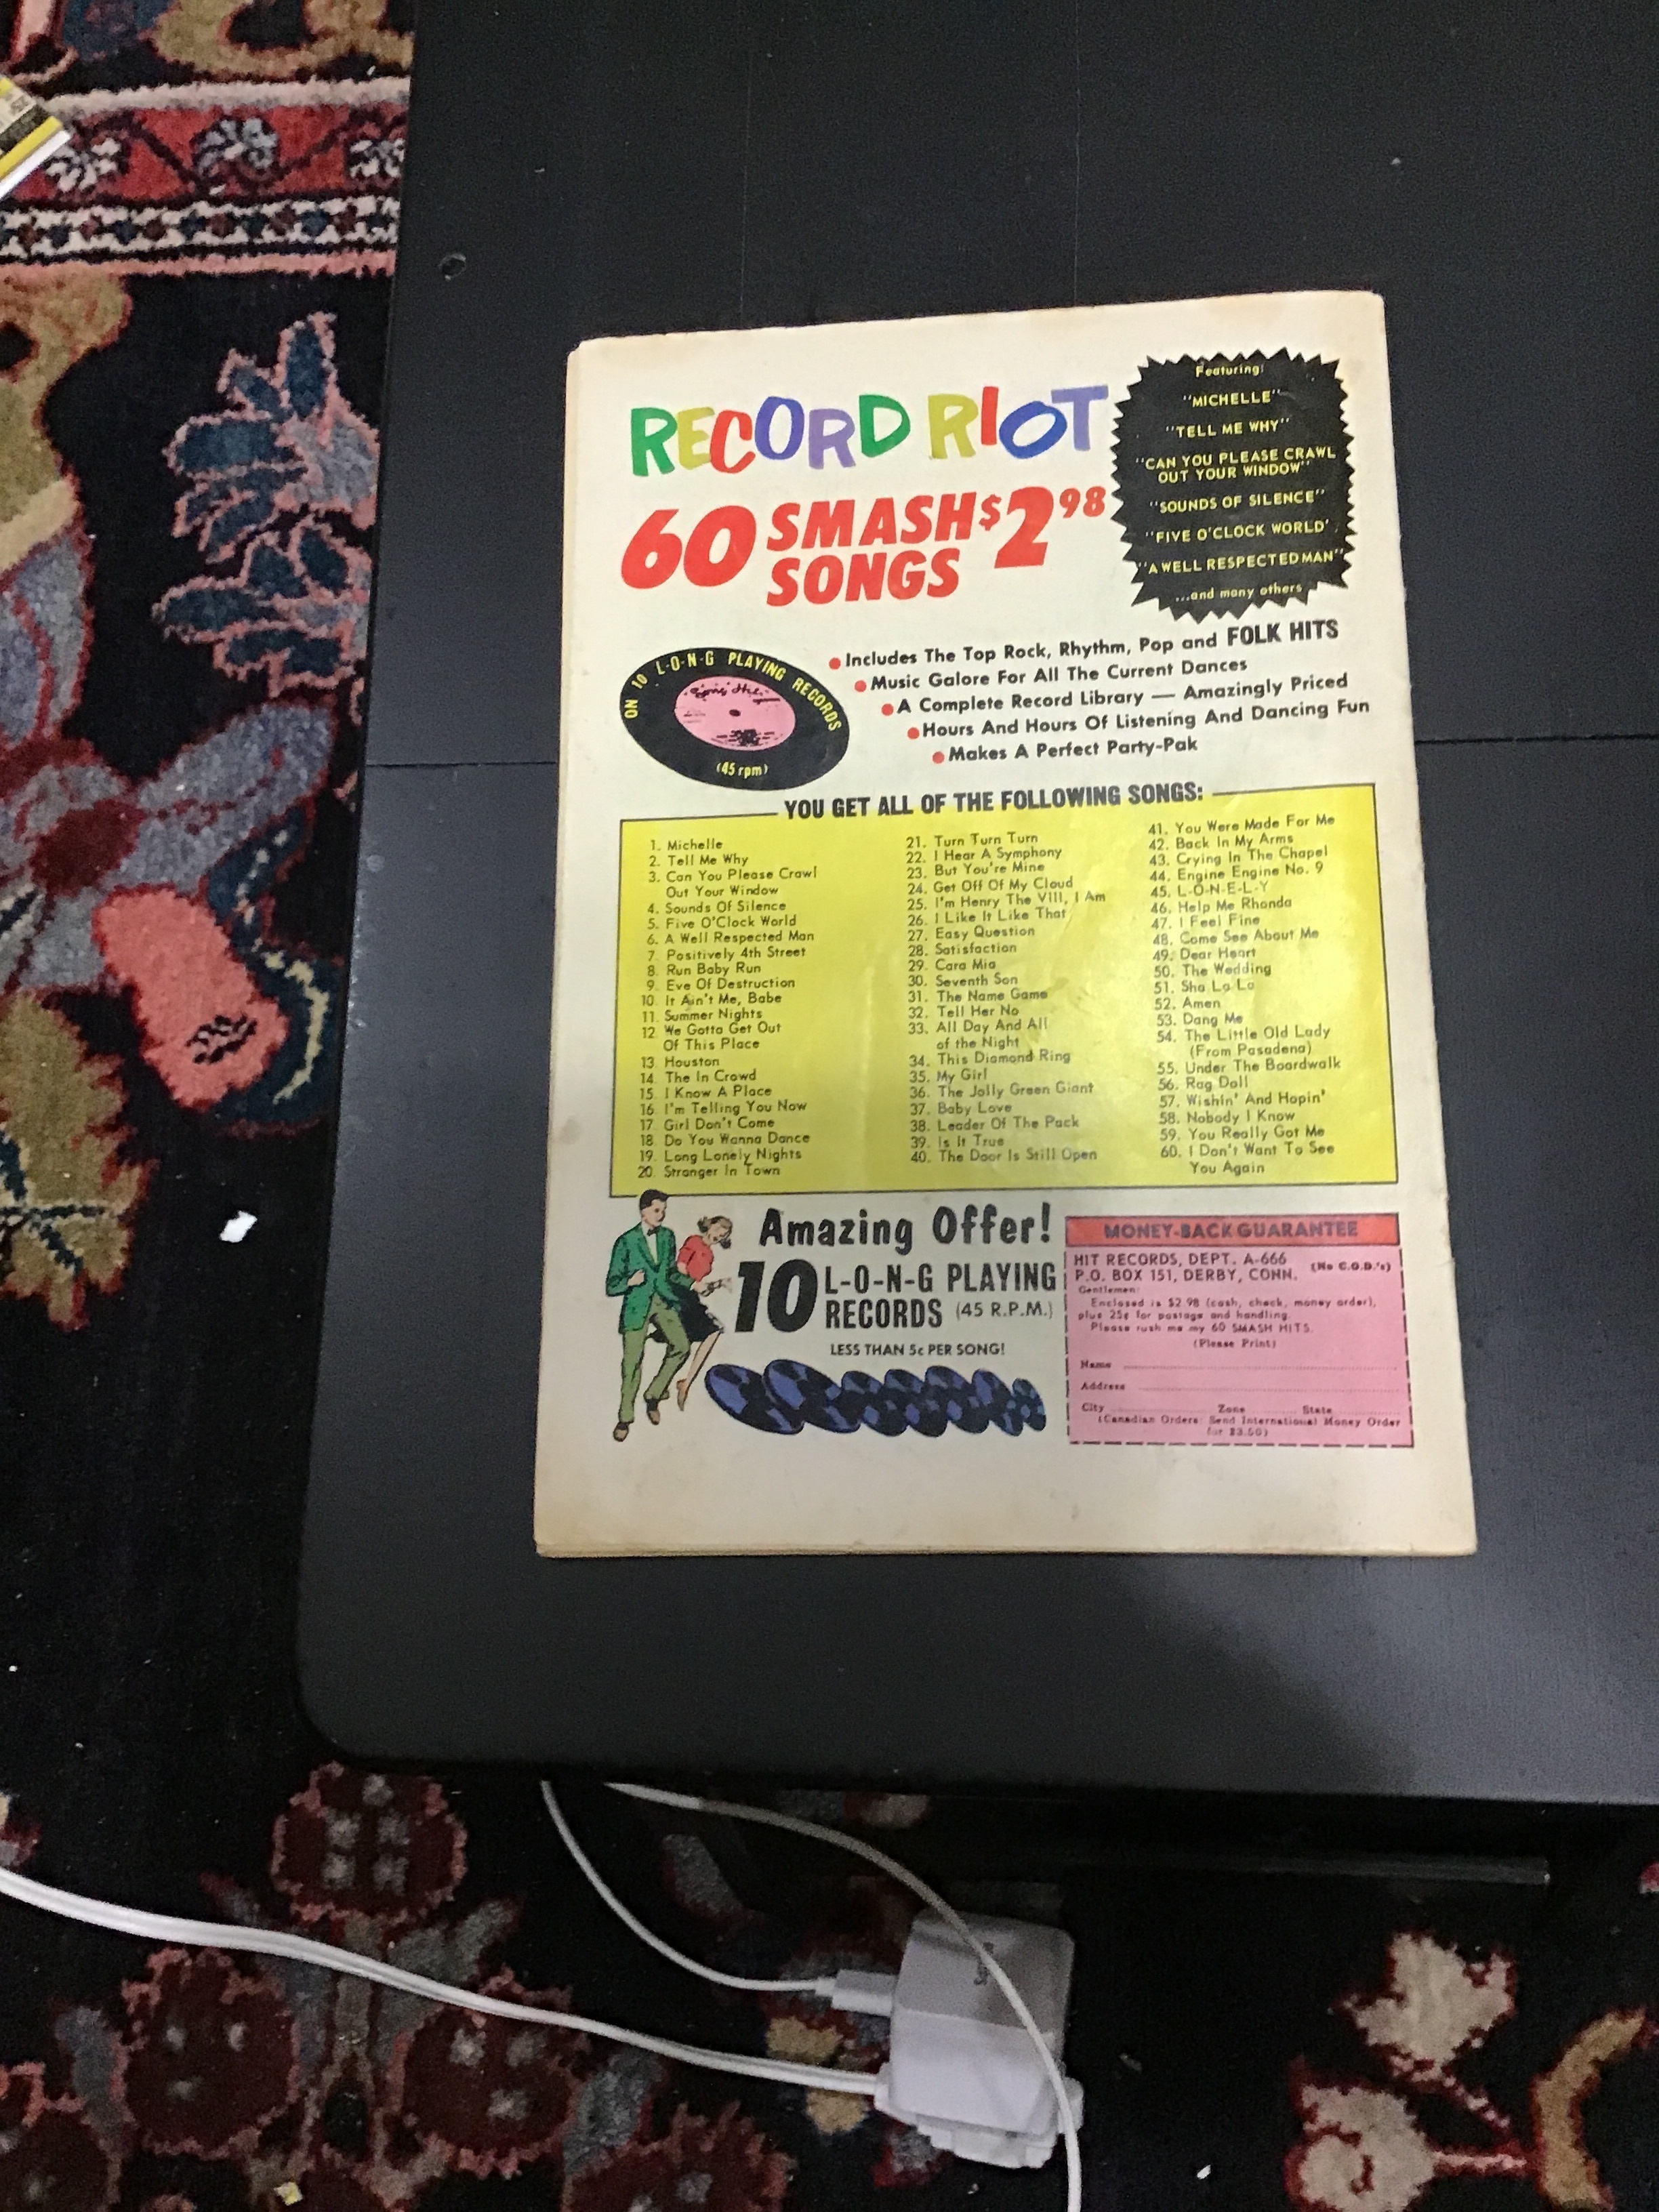 RECORD RIOT
60 SMASH SONGS $2.98
Featuring:
"MICHELLE"
"TELL ME WHY"
"CAN YOU PLEASE CRAWL
OUT YOUR WINDOW"
"SOUNDS OF SILENCE"
"FIVE O'CLOCK WORLD'
"A WELL RESPECTED MAN"
...and many others
ON 10 L-O-N-G PLAYING RECORDS
(45 rpm)
Includes The Top Rock, Rhythm, Pop and FOLK HITS
Music Galore For All The Current Dances
A Complete Record Library — Amazingly Priced
Hours And Hours Of Listening And Dancing Fun
Makes A Perfect Party-Pak
YOU GET ALL OF THE FOLLOWING SONGS:
1. Michelle
2. Tell Me Why
3. Can You Please Crawl
Out Your Window
4. Sounds Of Silence
5. Five O'Clock World
6. A Well Respected Man
7. Positively 4th Street
8. Run Baby Run
9. Eve Of Destruction
10. It Ain't Me, Babe
11. Summer Nights
12. We Gotta Get Out
Of This Place
13. Houston
14. The In Crowd
15. I Know A Place
16. I'm Telling You Now
17. Girl Don't Come
18. Do You Wanna Dance
19. Long Lonely Nights
20. Stranger In Town
21. Turn Turn Turn
22. I Hear A Symphony
23. But You're Mine
24. Get Off Of My Cloud
25. I'm Henry The VIII, I Am
26. I Like It Like That
27. Easy Question
28. Satisfaction
29. Cara Mia
30. Seventh Son
31. The Name Game
32. Tell Her No
33. All Day And All
of the Night
34. This Diamond Ring
35. My Girl
36. The Jolly Green Giant
37. Baby Love
38. Leader Of The Pack
39. Is It True
40. The Door Is Still Open
41. You Were Made For Me
42. Back In My Arms
43. Crying In The Chapel
44. Engine Engine No. 9
45. L-O-N-E-L-Y
46. Help Me Rhonda
47. I Feel Fine
48. Come See About Me
49. Dear Heart
50. The Wedding
51. Sha La La
52. Amen
53. Dang Me
54. The Little Old Lady
(From Pasadena)
55. Under The Boardwalk
56. Rag Doll
57. Wishin' And Hopin'
58. Nobody I Know
59. You Really Got Me
60. I Don't Want To See
You Again
Amazing Offer!
10 L-O-N-G PLAYING
RECORDS (45 R.P.M.)
LESS THAN 5c PER SONG!
MONEY-BACK GUARANTEE
HIT RECORDS, DEPT. A-666
P.O. BOX 151, DERBY, CONN. (No C.O.D.'s)
Gentlemen:
Enclosed is $2.98 (cash, check, money order),
plus 25¢ for postage and handling.
Please rush me my 60 SMASH HITS.
(Please Print)
Name
Address
City Zone State
(Canadian Orders: Send International Money Order
for $3.50)